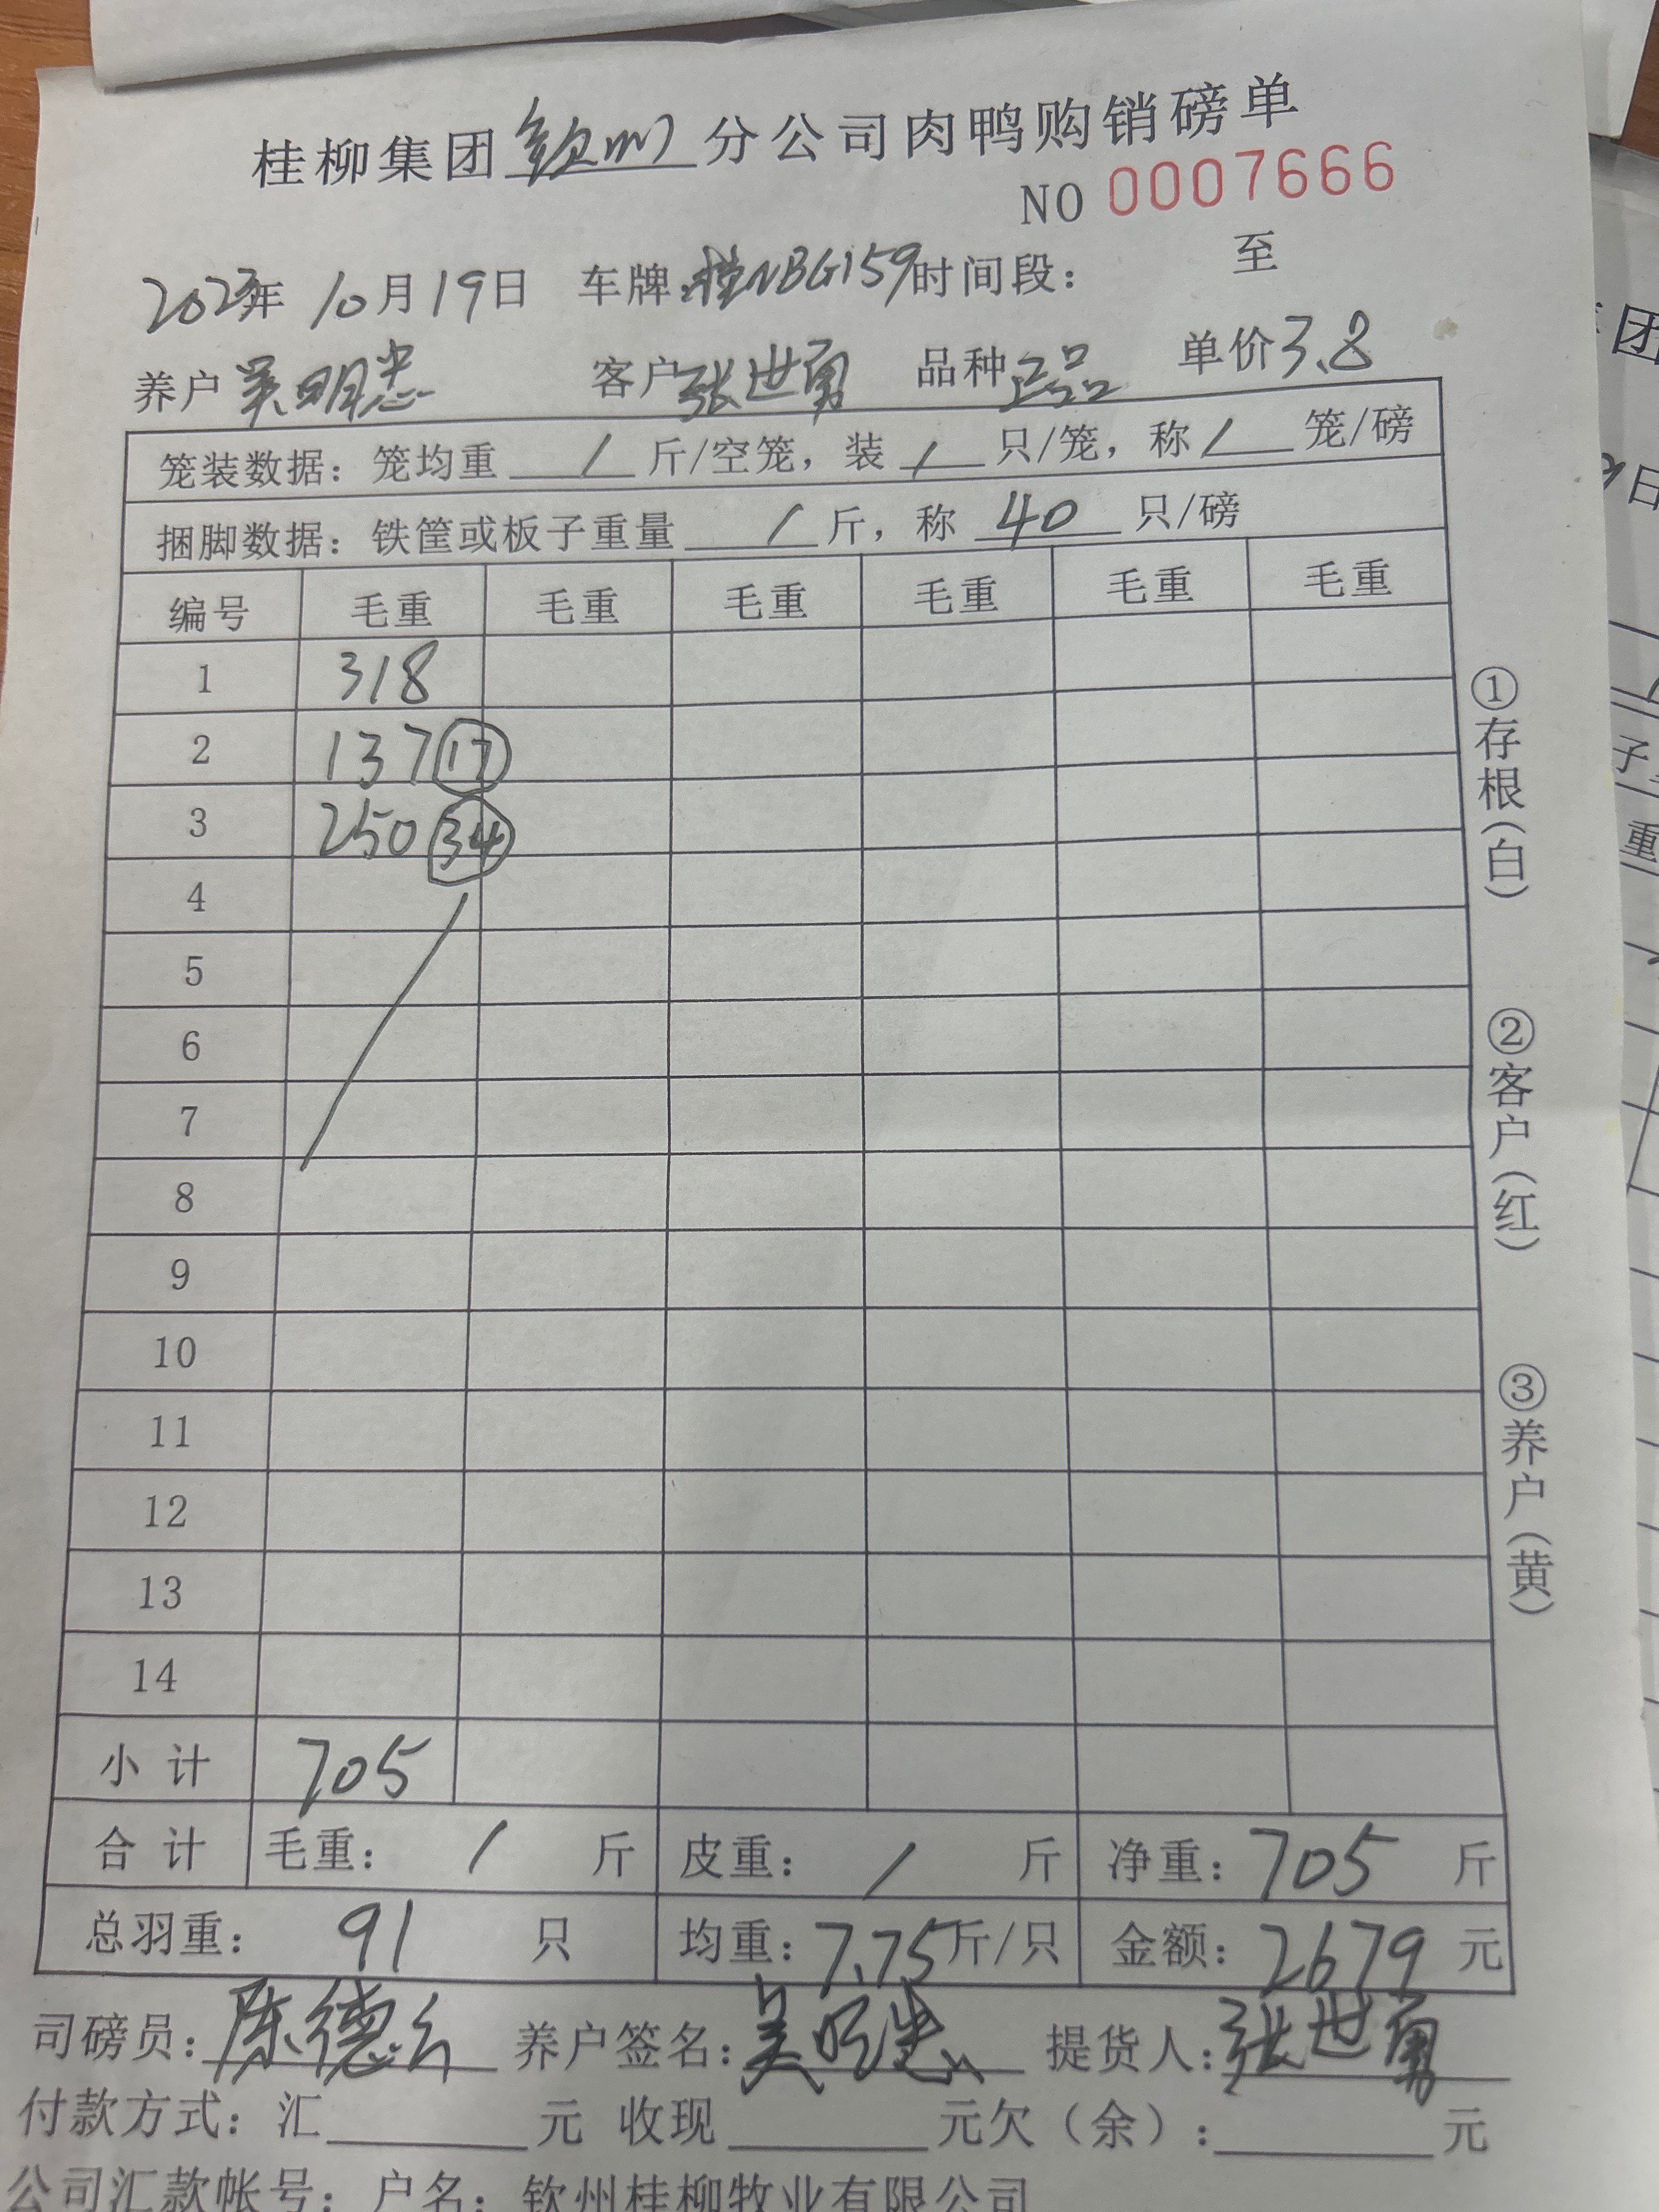 桂柳集团钦州分公司肉鸭购销磅单
NO 0007666
2023年 10月19日 车牌:桂NBG159时间段: 至
养户 吴明忠 客户 张世勇 品种 正品 单价3.8
笼装数据: 笼均重 / 斤/空笼, 装 / 只/笼, 称 / 笼/磅
捆脚数据: 铁筐或板子重量 / 斤, 称 40 只/磅
编号 毛重 毛重 毛重 毛重 毛重 毛重
1 318
2 137 17
3 250 34
4
5
6
7
8
9
10
11
12
13
14
小 计 705
合 计 毛重: / 斤 皮重: / 斤 净重: 705 斤
总羽重: 91 只 均重: 7.75斤/只 金额: 2679 元
司磅员: 陈德 养户签名: 吴明忠 提货人: 张世勇
付款方式: 汇 元 收现 元欠(余): 元
公司汇款帐号: 户名: 钦州桂柳牧业有限公司
①存根(白)
②客户(红)
③养户(黄)
团
日
子
重